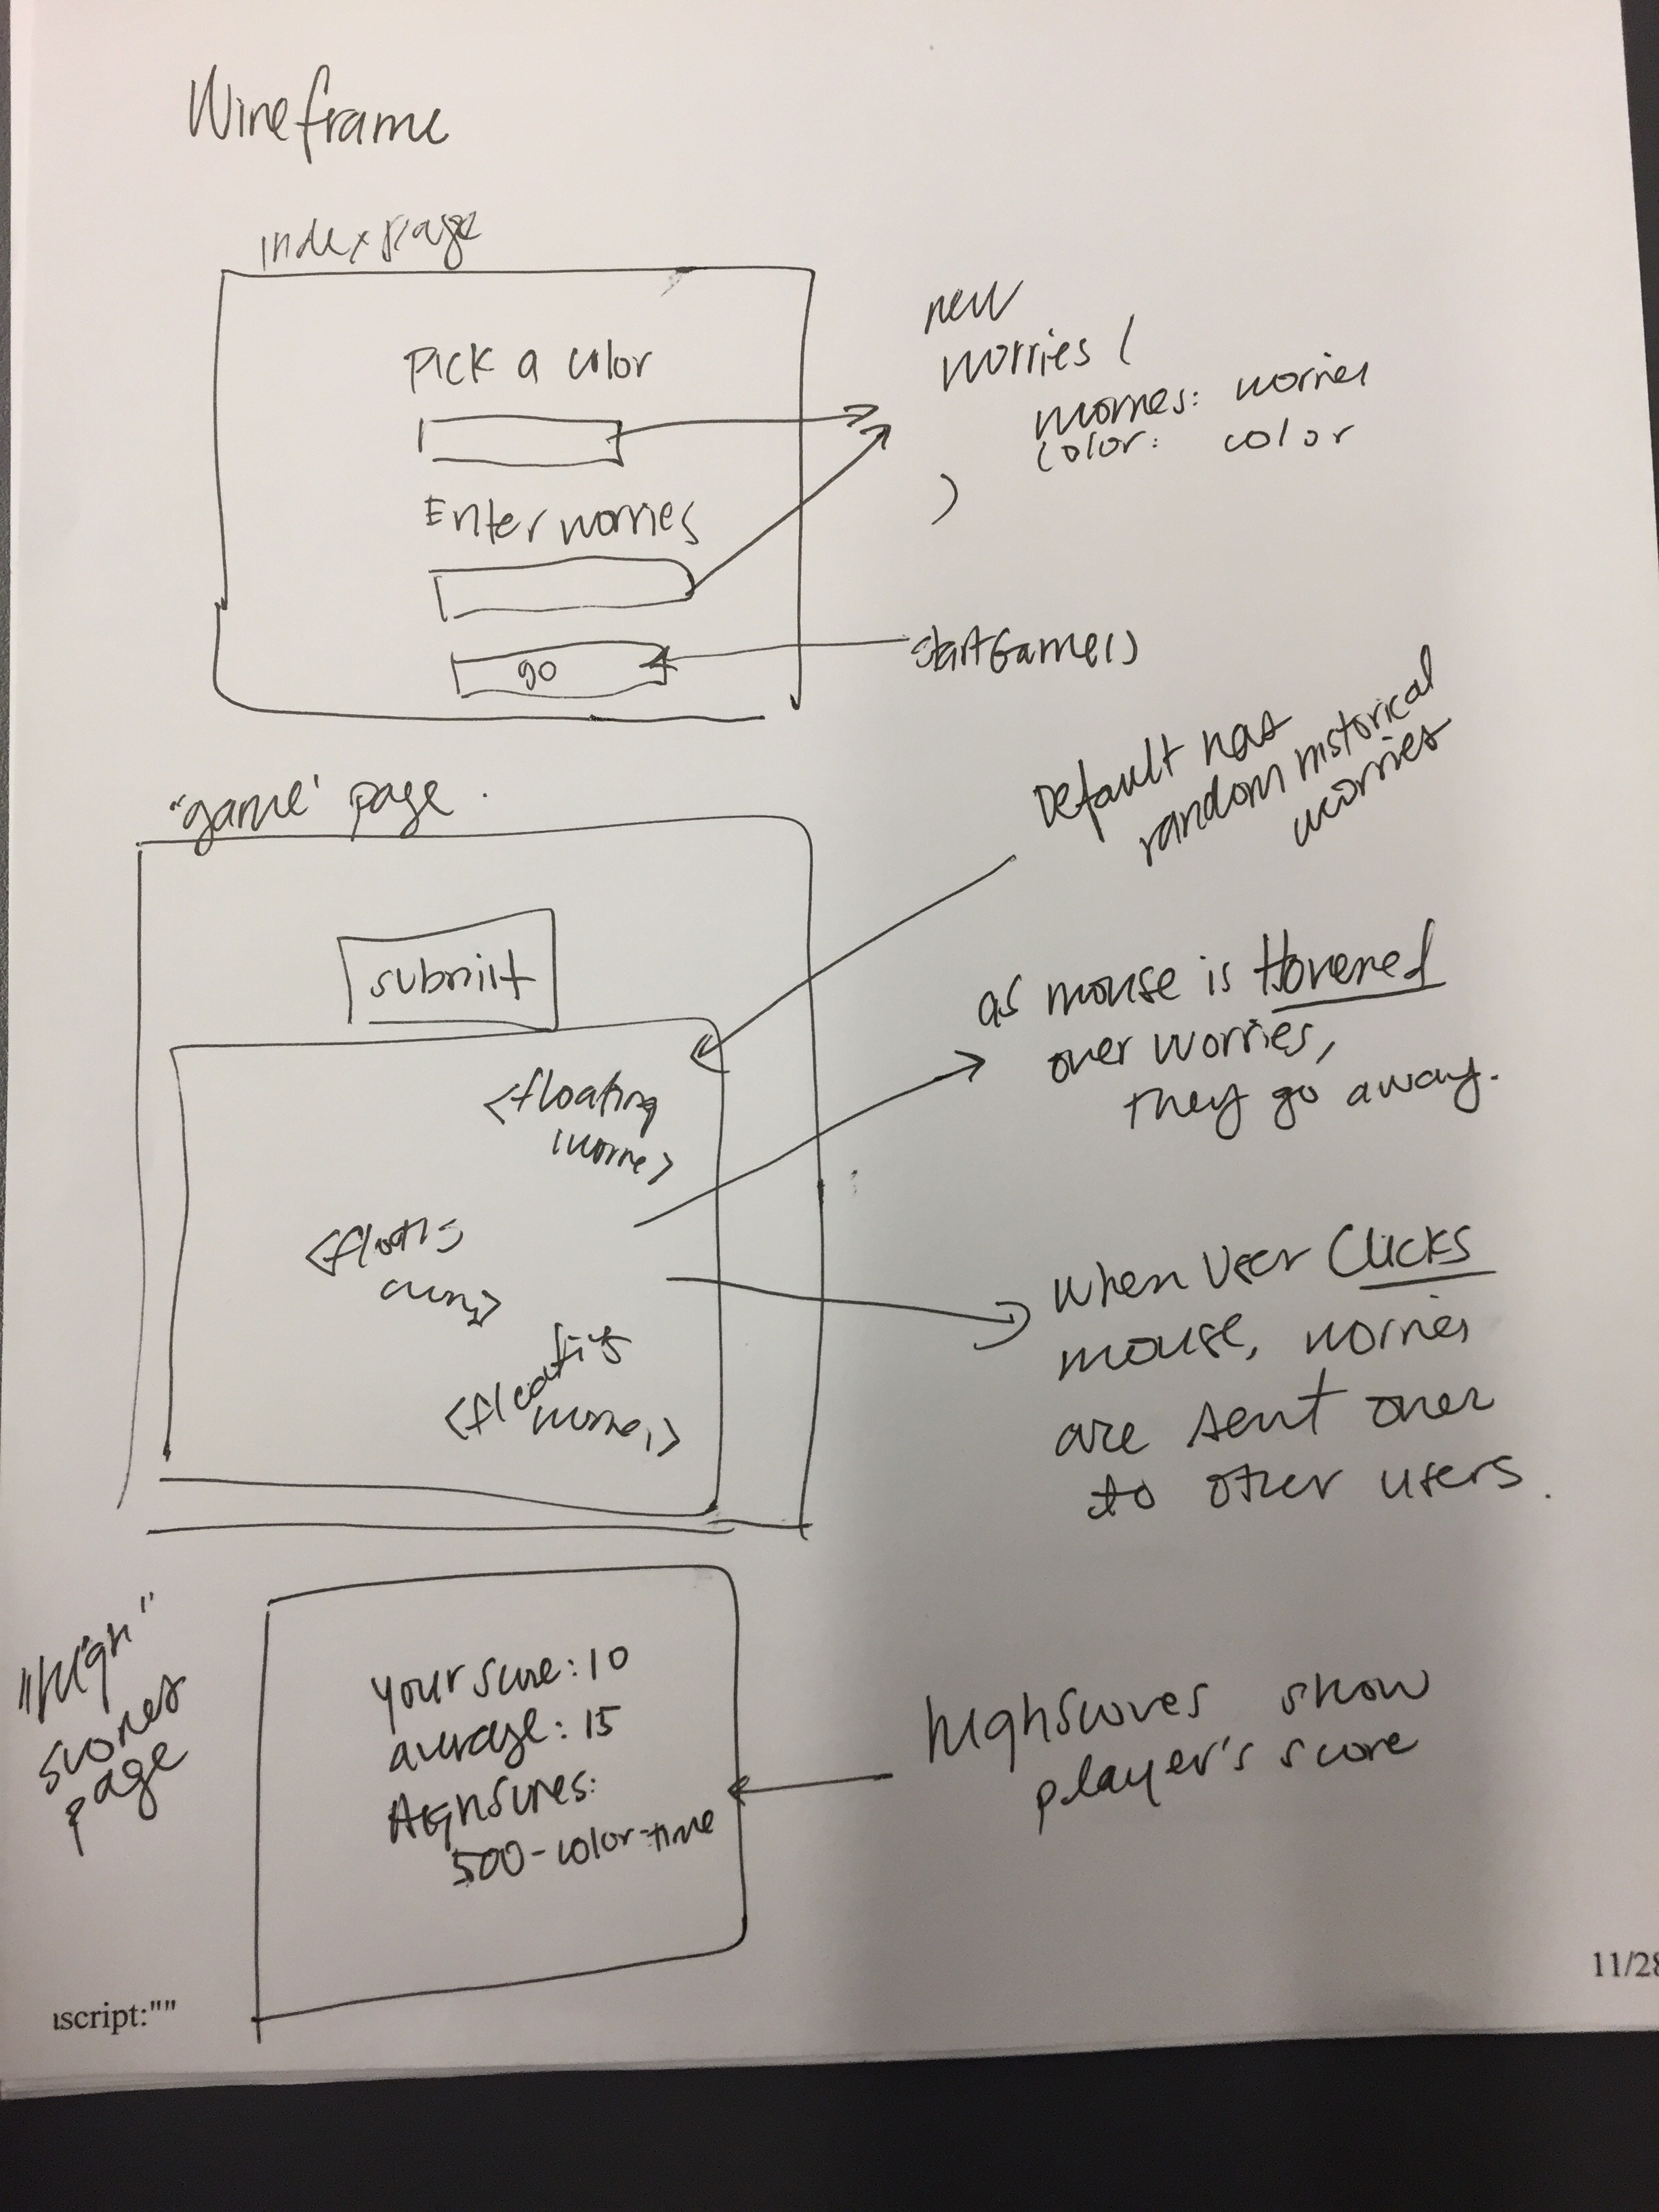 Wireframe
index page
Pick a color
Enter worries
go
new
worries (
worries: worries
color: color
)
startGame()
"game' page.
submit
<floating
worries>
<floating
<floating
worries>
Default has
random historical
worries
as mouse is Hovered
over worries,
they go away.
When User Clicks
mouse, worries
are sent over
to other users.
"High"
scores
page
your score: 10
average: 15
HighScores:
500-color-time
highscores show
player's score
ıscript:""
11/28